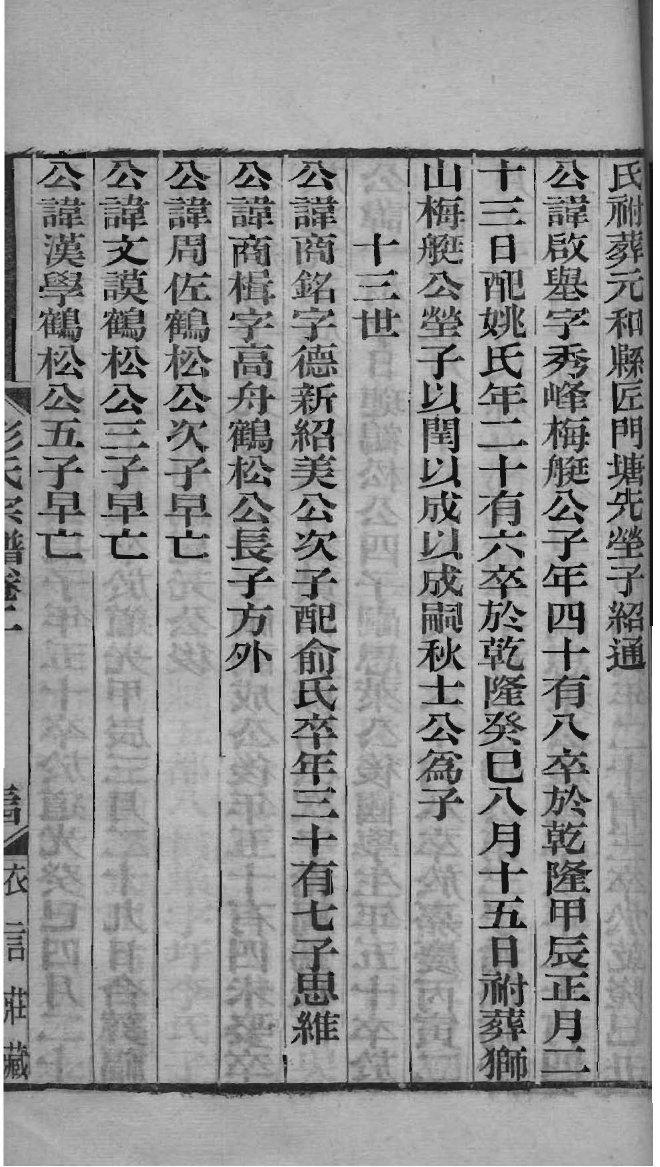 氏祔葬元和縣匠門塘先塋子紹通
公諱啟舉字秀峰梅艇公子年四十有八卒於乾隆甲辰正月二
十三日配姚氏年二十有六卒於乾隆癸巳八月十五日祔葬獅
山梅艇公塋子以閏以成以成嗣秋士公為子
十三世
公諱商銘字德新紹美公次子配俞氏卒年三十有七子思維
公諱商楫字高舟鶴松公長子方外
公諱周佐鶴松公次子早亡
公諱文謨鶴松公三子早亡
公諱漢學鶴松公五子早亡
彭氏宗譜卷二
衣言莊藏